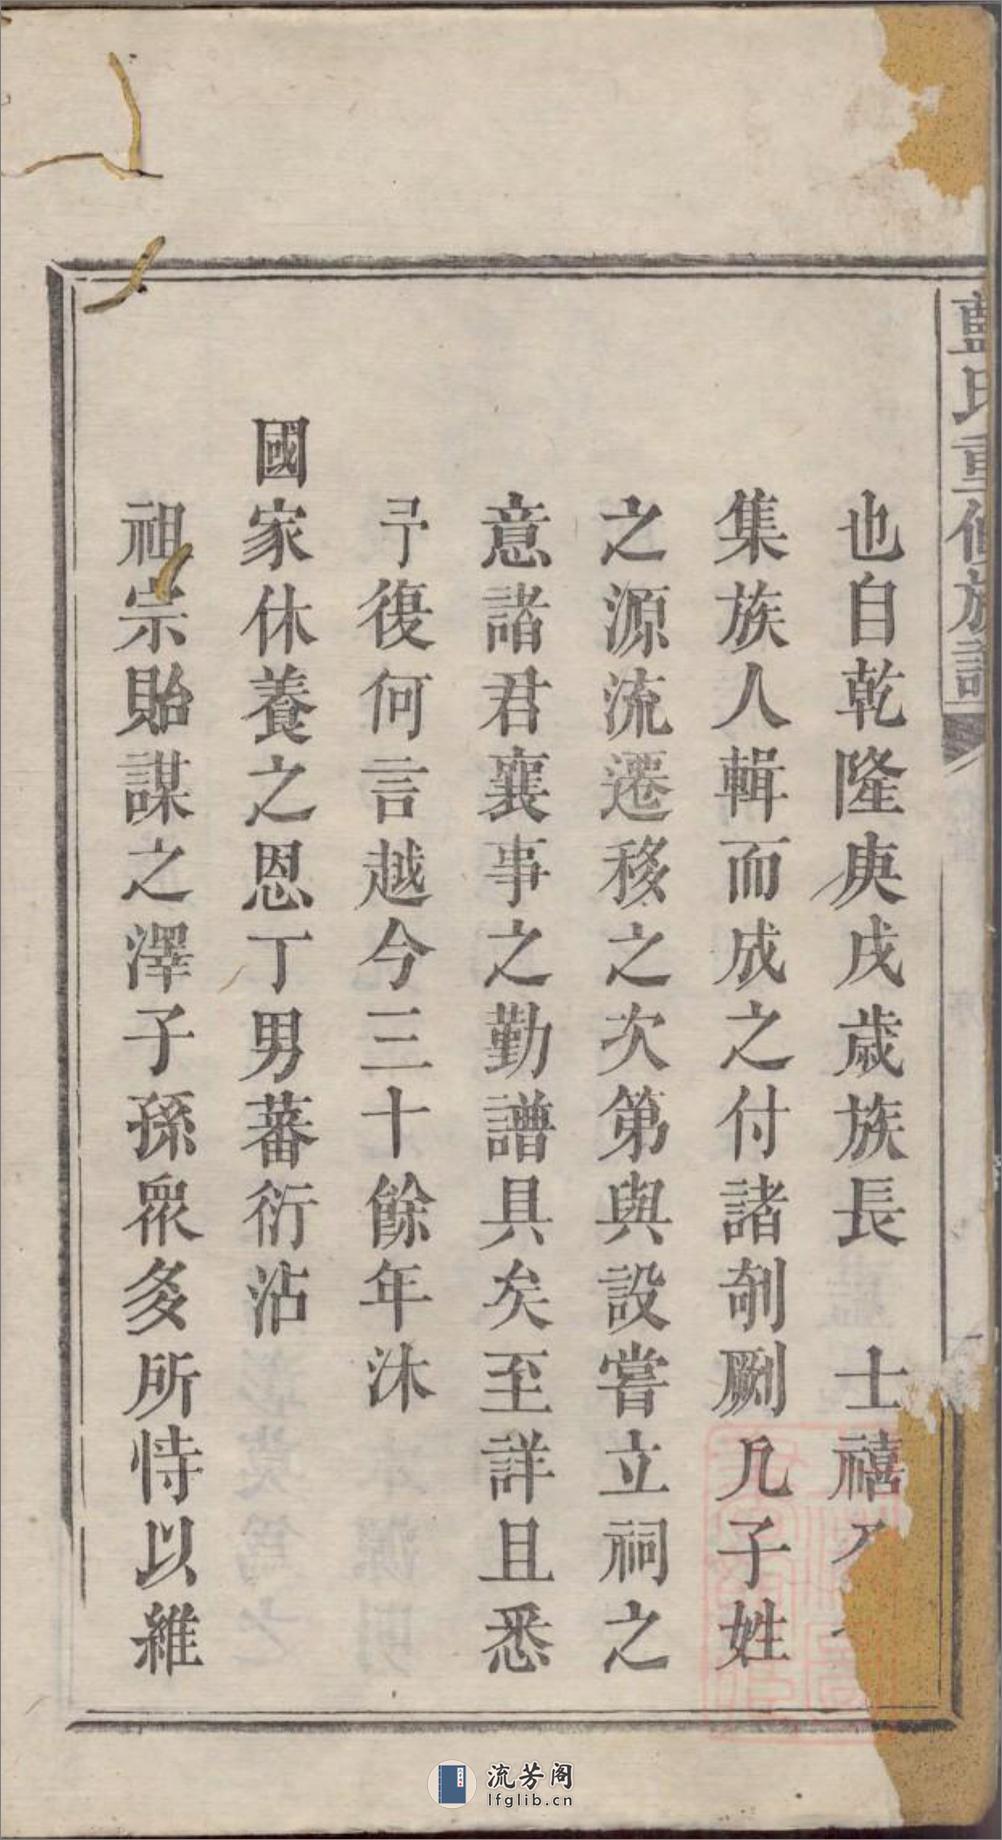 藍氏重修族譜
也自乾隆庚戌歲族長 士禧
集族人輯而成之付諸剞劂凡子姓
之源流遷移之次第與設嘗立祠之
意諸君襄事之勤譜具矣至詳且悉
予復何言越今三十餘年沐
國家休養之恩丁男蕃衍沾
祖宗貽謀之澤子孫眾多所恃以維
流芳阁
lfglib.cn